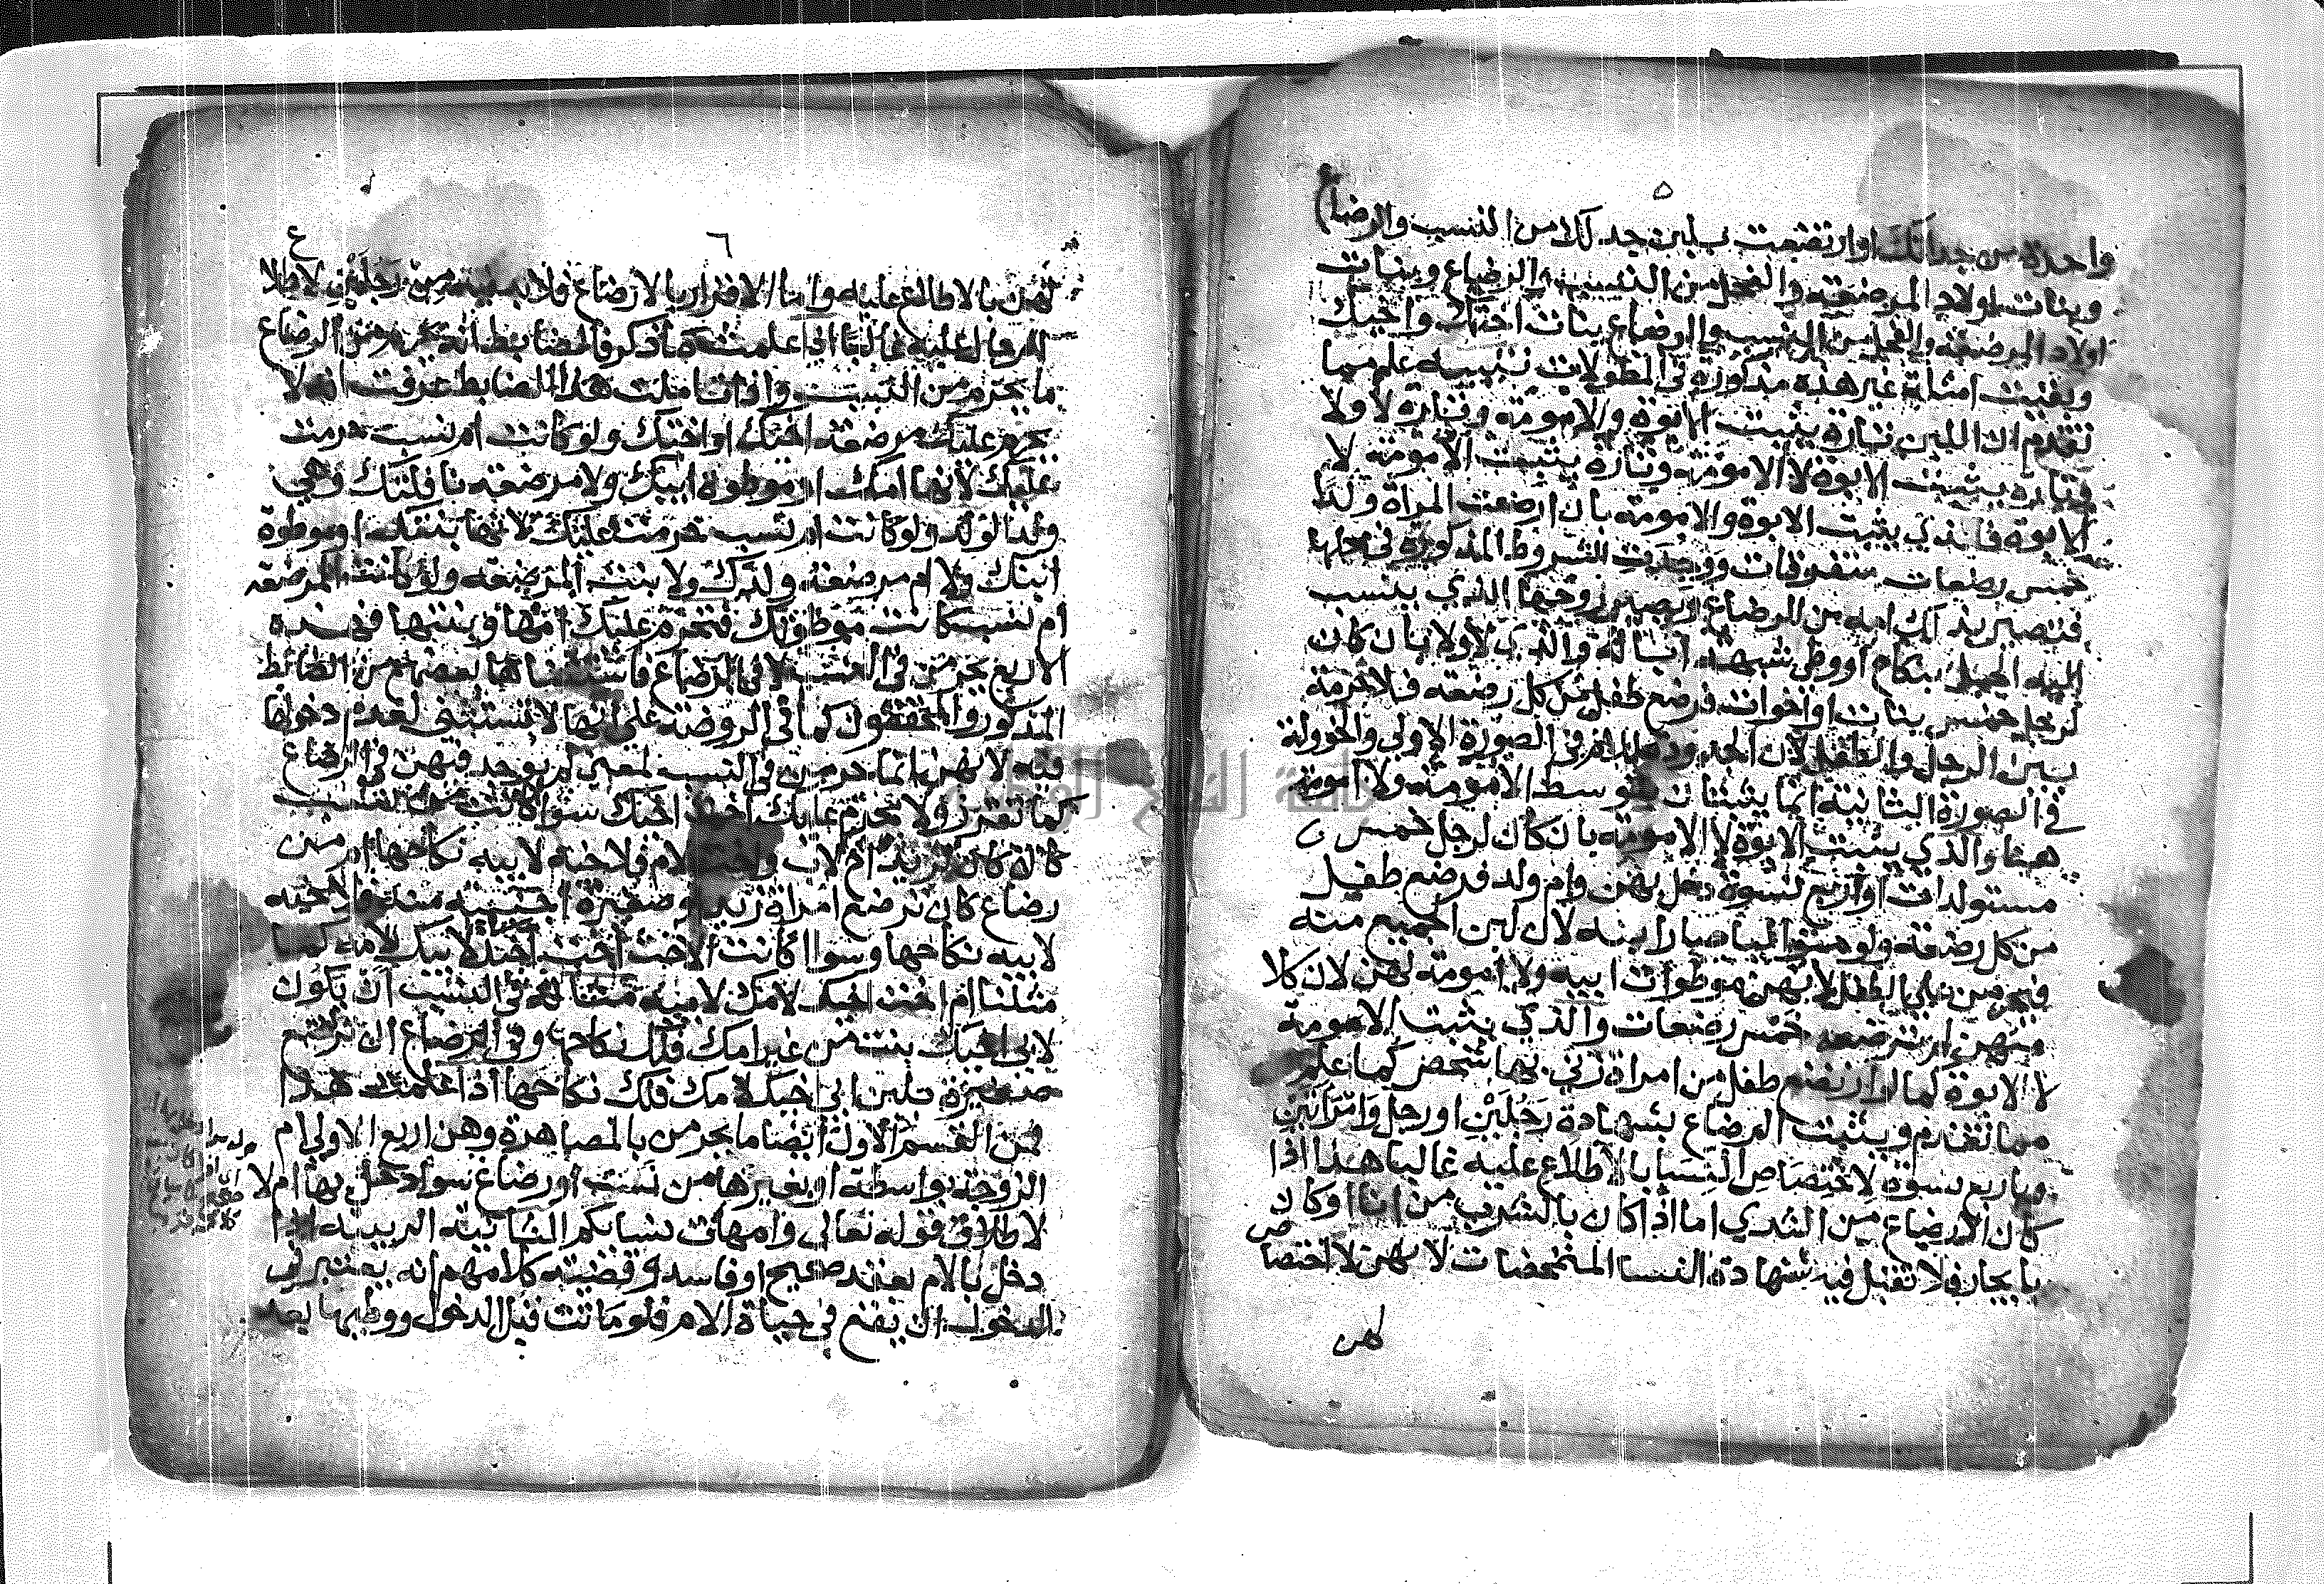 ٥
واحدة من جداتك او ارتضعت بلبن جد لك من النسب والرضاع
وبنات اولاد المرضعة والفحل من النسب والرضاع وبنات
اولاد المرضعة والفحل من النسب والرضاع بنات اختك واخيك
وبقيت امثلة غير هذه مذكورة في المطولات تنبيه علم مما
تقدم ان اللبن تارة يثبت الابوة والامومة وتارة لا ولا
وتارة يثبت الابوة لا الامومة وتارة يثبت الامومة لا
الابوة فالذي يثبت الابوة والامومة بان ارضعت المراة ولدا
خمس رضعات متفرقات ووجدت الشروط المذكورة في محلها
فتصير بذلك امه من الرضاع ويصير زوجها الذي ينسب
اليه الحبل بنكاح او وطي شبهة ابا له والذي لا ولا بان كان
لرجل خمس بنات او اخوات فرضع طفل من كل رضعة فلا حرمة
بين الرجل والطفل لان الجدودة للام في الصورة الاولى والخوولة
في الصورة الثانية انما يثبتان بتوسط الامومة ولا امومة
هنا والذي يثبت الابوة لا الامومة بان كان لرجل خمس
مستولدات او اربع نسوة دخل بهن وام ولد فرضع طفل
من كل رضعة ولو متواليا صار ابنه لان لبن الجميع منه
فيحرمن على الطفل لانهن موطوات ابيه ولا امومة لهن لان كلا
منهن لم ترضعه خمس رضعات والذي يثبت الامومة
لا الابوة كما لو ارتضع طفل من امراة زني بها شخص كما علم
مما تقدم ويثبت الرضاع بشهادة رجلين او رجل وامراتين
وباربع نسوة لاختصاص النسا بالاطلاع عليه غالبا هذا اذا
كان الارضاع من الثدي اما اذا كان بالشرب من انا او كان
بايجار فلا تقبل فيه شهادة النسا المتمحضات لانهن لا اختصاص
لهن
٦
لهن بالاطلاع عليه واما الاقرار بالارضاع فلا بد فيه من رجلين لاطلاع
الرجال عليه غالبا اذا علمت ما ذكر فالضابط انه يحرم من الرضاع
ما يحرم من النسب واذا تاملت هذا الضابط عرفت انه لا
يحرم عليك مرضعة اخيك او اختك ولو كانت ام نسب حرمت
عليك لانها امك او موطوة ابيك ولا مرضعة نافلتك وهي
ولد الولد ولو كانت ام نسب حرمت عليك لانها بنتك او موطوة
ابنك ولا ام مرضعة ولدك ولا بنت المرضعة ولو كانت المرضعة
ام نسب كانت موطوتك فتحرم عليك امها وبنتها فهذه
الاربع يحرمن في النسب لا في الرضاع فاستثناها بعضهم من الضابط
المذكور والمحققون كما في الروضة على انها لا تستثنى لعدم دخولها
فيه لانهن انما حرمن في النسب لمعنى لم يوجد فيهن في الرضاع
كما تقرر ولا تحرم عليك اخت اخيك سوا كانت من نسب
كان كان لزيد اخ لاب واخت لام فلاخيه لابيه نكاحها ام من
رضاع كان ترضع امراة زيدا وصغيرة اجنبية منه فلاخيه
لابيه نكاحها وسوا كانت الاخت اخت اخيك لابيك لامه كما
مثلنا ام اخت اخيك لامك لابيه مثاله في النسب ان يكون
لابي اخيك بنت من غير امك فلك نكاحها وفي الرضاع ان ترتضع
صغيرة بلبن ابي اخيك لامك فلك نكاحها اذا علمت هذا
فمن القسم الاول ايضا ما يحرمن بالمصاهرة وهن اربع الاولى ام
الزوجة بواسطة او بغيرها من نسب او رضاع سوا دخل بها ام لا
لاطلاق قوله تعالى وامهات نسائكم الثانية الربيبة اذا
دخل بالام بعقد صحيح او فاسد وقضية كلامهم انه يعتبر في
الدخول ان يقع في حياة الام فلو ماتت قبل الدخول ووطيها بعد